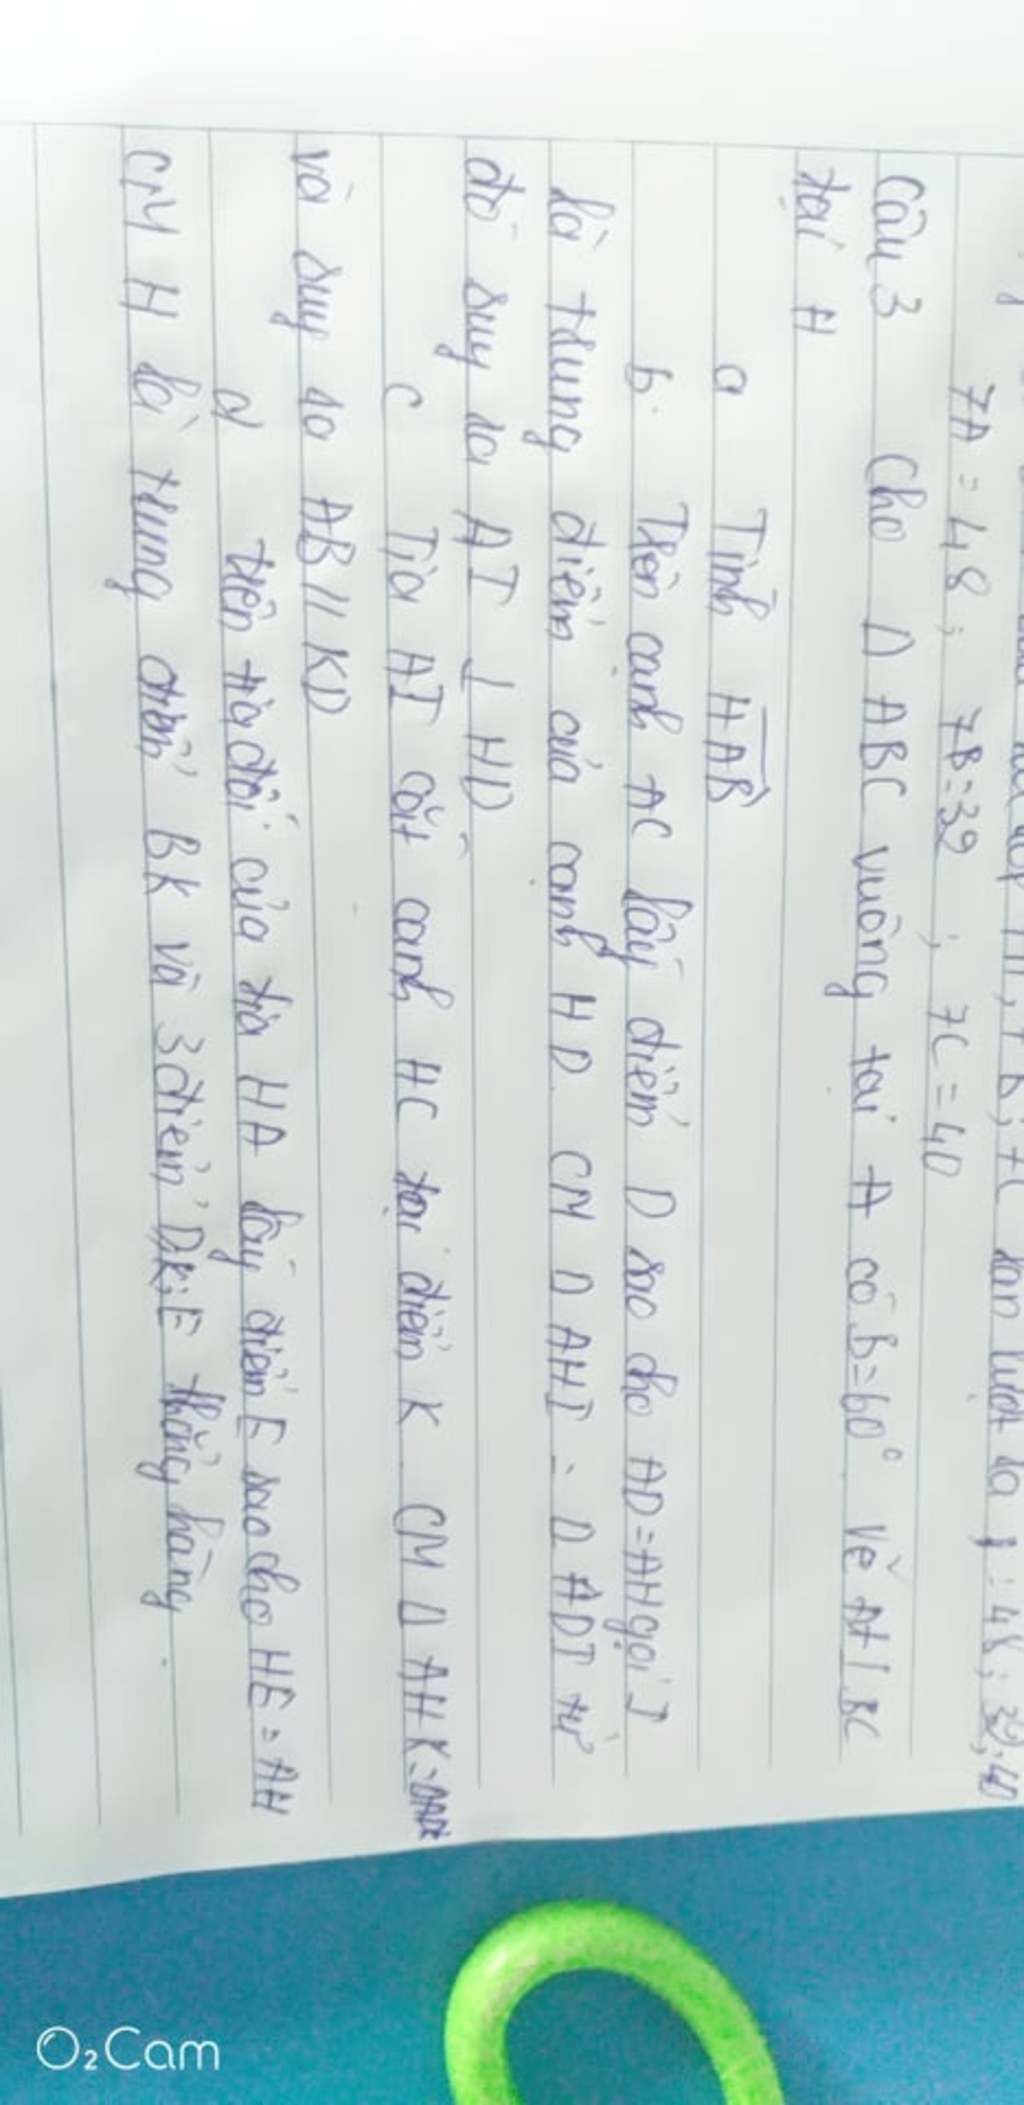 lần lượt là : 48; 32; 40
7A = 48; 7B = 32; 7C = 40
Câu 3 Cho Δ ABC vuông tại A có B = 60° Vẽ AH ⊥ BC
tại H
a Tính HAB
b. Trên cạnh AC lấy điểm D sao cho AD = AH gọi I
là trung điểm của cạnh HD. CM Δ AHI = Δ ADI từ
đó suy ra AI ⊥ HD
c Tia AI cắt cạnh HC tại điểm K. CM Δ AHK = ΔADK
và suy ra AB // KD
d trên tia đối của tia HA lấy điểm E sao cho HE = AH
CM H là trung điểm BK và 3 điểm D;K;E thẳng hàng.
O2Cam